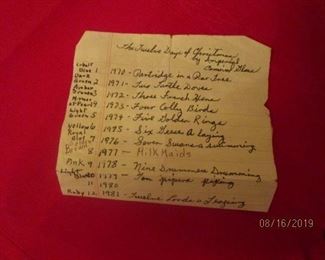 The Twelve Days of Christmas
by Imperial
Carnival Glass
Cobalt
Blue 1 1970 - Partridge in a Pear Tree
Dark
Green 2 1971 - Two Turtle Doves
Amber
3 1972 - Three French Hens
4 1973 - Four Colly Birds
Light
Green 5 1974 - Five Golden Rings
Yellow 6 1975 - Six Geese A Laying
7 1976 - Seven Swans a swimming
8 1977 - Milk Maids
Pink 9 1978 - Nine Drummers Drumming
Light
1979 - Ten pipers piping
11 1980
Ruby 12 1981 - Twelve Lords a Leaping
08/16/2019